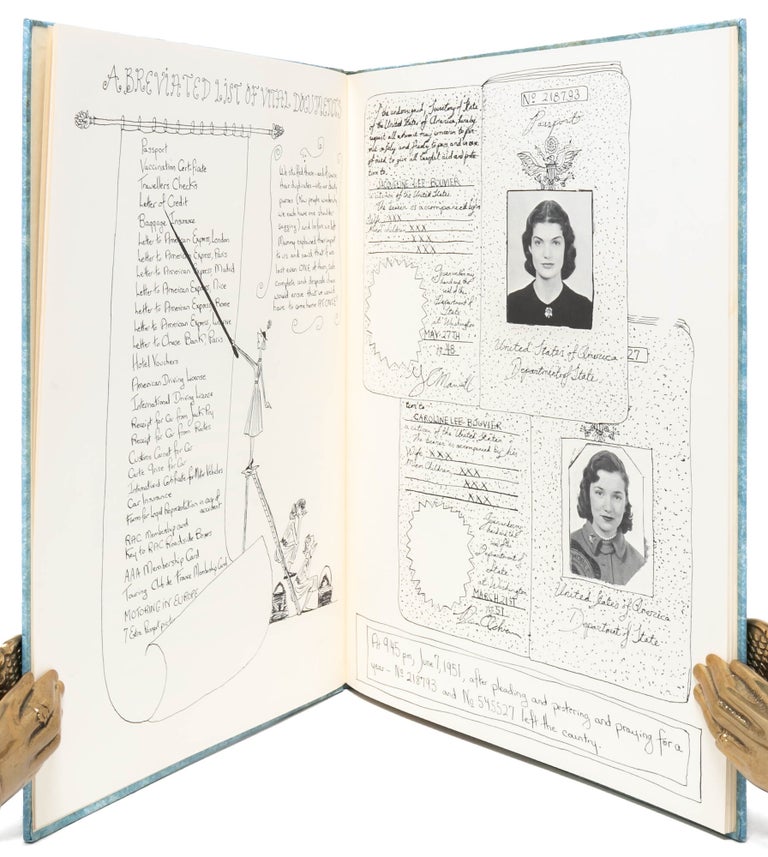 A BREVIATED LIST OF VITAL DOCUMENTS
Passport
Vaccination Certificate
Travellers Checks
Letter of Credit
Baggage Insurance
Letter to American Express, London
Letter to American Express, Paris
Letter to American Express Madrid
Letter to American Express, Nice
Letter to American Express Rome
Letter to American Express, Venice
Letter to Chase Bank, Paris
Hotel Vouchers
American Driving License
International Driving License
Receipt for Car from
Receipt for Car from
Customs Carnet for Car
for Car
International Certificate for Motor Vehicles
Car Insurance
Forms for Legal Representation in case of
accident
RAC Membership and
Key to RAC Roadside Boxes
AAA Membership Card
Touring Club de France Membership Card
MOTORING IN EUROPE
7 Extra
We stuffed these - and
their duplicates - into our
purses (Now people wonder why
we each have one shoulder
sagging) and before we left
Mummy explained their import
to us and said that if we
lost even ONE of them, such
complete and desperate chaos
would ensue that we would
have to come home AT ONCE!
I the undersigned, Secretary of State
of the United States of America, hereby
request all whom it may concern to per-
mit safely and freely to pass and in case
of need to give all lawful aid and protec-
tion to
JACQUELINE LEE BOUVIER
a citizen of the United States
The bearer is accompanied by
Wife XXX
Minor Children XXX
XXX
XXX
Given under my
hand and the
seal of the
Department of
State
at Washington
MAY 27TH
19 48
No 218793
Passport
United States of America
Department of State
27
tion to
CAROLINE LEE BOUVIER
a citizen of the United States
The bearer is accompanied by his
Wife XXX
Minor Children XXX
XXX
XXX
Given under my
hand and the
seal of the
Department of
State
at Washington
MARCH 21ST
1951
United States of America
Department of State
At 9:45 pm, June 7, 1951, after pleading and pestering and praying for a
year - No 218793 and No 545527 left the country.